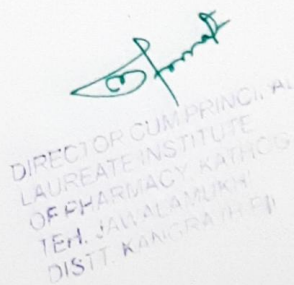 DIRECTOR CUM PRINCIPAL
LAUREATE INSTITUTE
OF PHARMACY, KATHOG
TEH. JAWALAMUKHI
DISTT. KANGRA (H.P.)